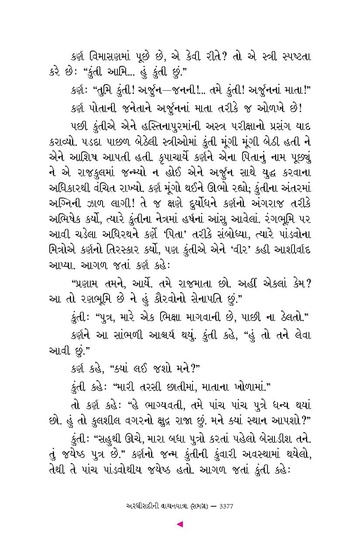 કર્ણ વિમાસણમાં પૂછે છે, એ કેવી રીતે? તો એ સ્ત્રી સ્પષ્ટતા
કરે છેઃ “કુંતી આમિ... હું કુંતી છું.”
કર્ણઃ “તુમિ કુંતી! અર્જુન—જનની!... તમે કુંતી! અર્જુનનાં માતા!”
કર્ણ પોતાની જનેતાને અર્જુનનાં માતા તરીકે જ ઓળખે છે!
પછી કુંતીએ એને હસ્તિનાપુરમાંની અસ્ત્ર પરીક્ષાનો પ્રસંગ યાદ
કરાવ્યો. પડદા પાછળ બેઠેલી સ્ત્રીઓમાં કુંતી મૂંગી મૂંગી બેઠી હતી ને
એને આશિષ આપતી હતી. કૃપાચાર્યે કર્ણને એના પિતાનું નામ પૂછ્યું
ને એ રાજકુલમાં જન્મ્યો ન હોઈ એને અર્જુન સાથે યુદ્ધ કરવાના
અધિકારથી વંચિત રાખ્યો. કર્ણ મૂંગો થઈને ઊભો રહ્યો; કુંતીના અંતરમાં
અગ્નિની ઝાળ લાગી! તે જ ક્ષણે દુર્યોધને કર્ણનો અંગરાજ તરીકે
અભિષેક કર્યો, ત્યારે કુંતીના નેત્રમાં હર્ષનાં આંસુ આવેલાં. રંગભૂમિ પર
આવી ચડેલા અધિરથને કર્ણે ‘પિતા’ તરીકે સંબોધ્યા, ત્યારે પાંડવોના
મિત્રોએ કર્ણનો તિરસ્કાર કર્યો, પણ કુંતીએ એને ‘વીર’ કહી આશીર્વાદ
આપ્યા. આગળ જતાં કર્ણ કહેઃ
“પ્રણામ તમને, આર્યે. તમે રાજમાતા છો. અહીં એકલાં કેમ?
આ તો રણભૂમિ છે ને હું કૌરવોનો સેનાપતિ છું.”
કુંતીઃ “પુત્ર, મારે એક ભિક્ષા માગવાની છે, પાછી ના ઠેલતો.”
કર્ણને આ સાંભળી આશ્ચર્ય થયું. કુંતી કહે, “હું તો તને લેવા
આવી છું.”
કર્ણ કહે, “ક્યાં લઈ જશો મને?”
કુંતી કહેઃ “મારી તરસી છાતીમાં, માતાના ખોળામાં.”
તો કર્ણ કહેઃ “હે ભાગ્યવતી, તમે પાંચ પાંચ પુત્રે ધન્ય થયાં
છો. હું તો કુલશીલ વગરનો ક્ષુદ્ર રાજા છું. મને ક્યાં સ્થાન આપશો?”
કુંતીઃ “સહુથી ઊંચે, મારા બધા પુત્રો કરતાં પહેલો બેસાડીશ તને.
તું જ્યેષ્ઠ પુત્ર છે.” કર્ણનો જન્મ કુંતીની કુંવારી અવસ્થામાં થયેલો,
તેથી તે પાંચ પાંડવોથીય જ્યેષ્ઠ હતો. આગળ જતાં કુંતી કહેઃ
અરધીસદીની વાચનયાત્રા (સમગ્ર) — 3377